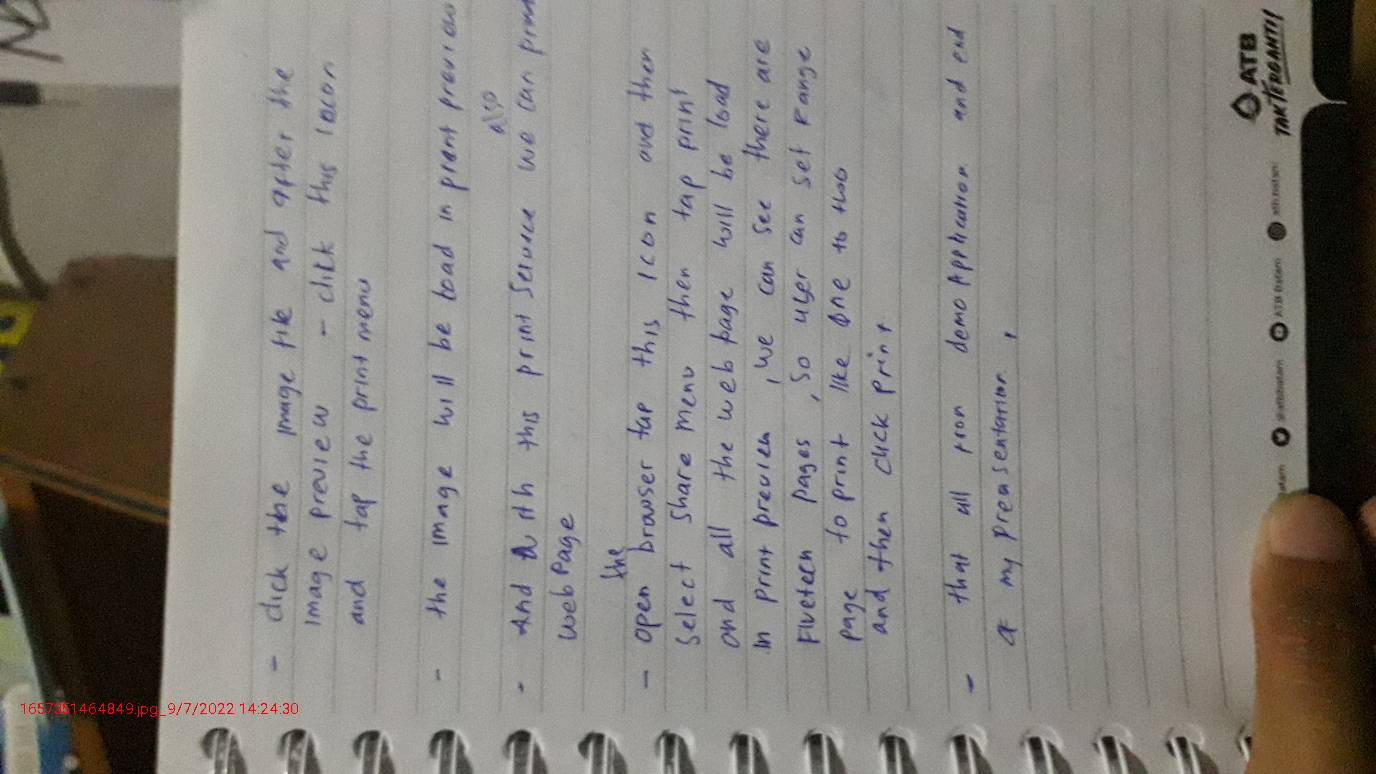 - click the image file and after the
image preview - click this icon
and tap the print menu
- the image will be load in print preview
also
- And with this print service we can print
web page
the
- open browser tap this icon and then
select share menu then tap print
and all the web page will be load
in print preview, we can see there are
Fiveteen pages, so user can set range
page to print like one to two
and then click print
- that all from demo Application and end
of my preasentation,
ATB
TAKTERGANTI
atb batam
ATB Batam
@atbbatam
1657351464849.jpg_9/7/2022 14:24:30